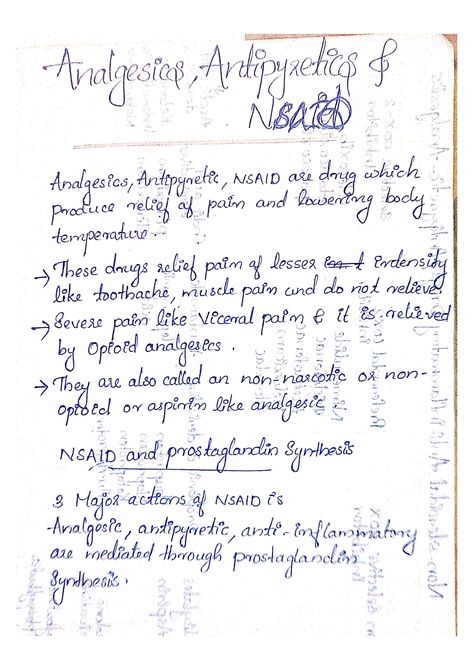 Analgesics, Antipyretics &
NSAID
Analgesics, Antipyretic, NSAID are drug which
produce relief of pain and lowering body
temperature.
→ These drugs relief pain of lesser indensity
like toothache, muscle pain and do not relieve
→ Severe pain like Viceral pain & it is relieved
by Opioid analgesics.
→ They are also called an non-narcotic or non-
opioid or aspirin like analgesic
NSAID and prostaglandin Synthesis
3 Major actions of NSAID is
-Analgesic, antipyretic, anti-inflammatory
are mediated through prostaglandin
Synthesis.